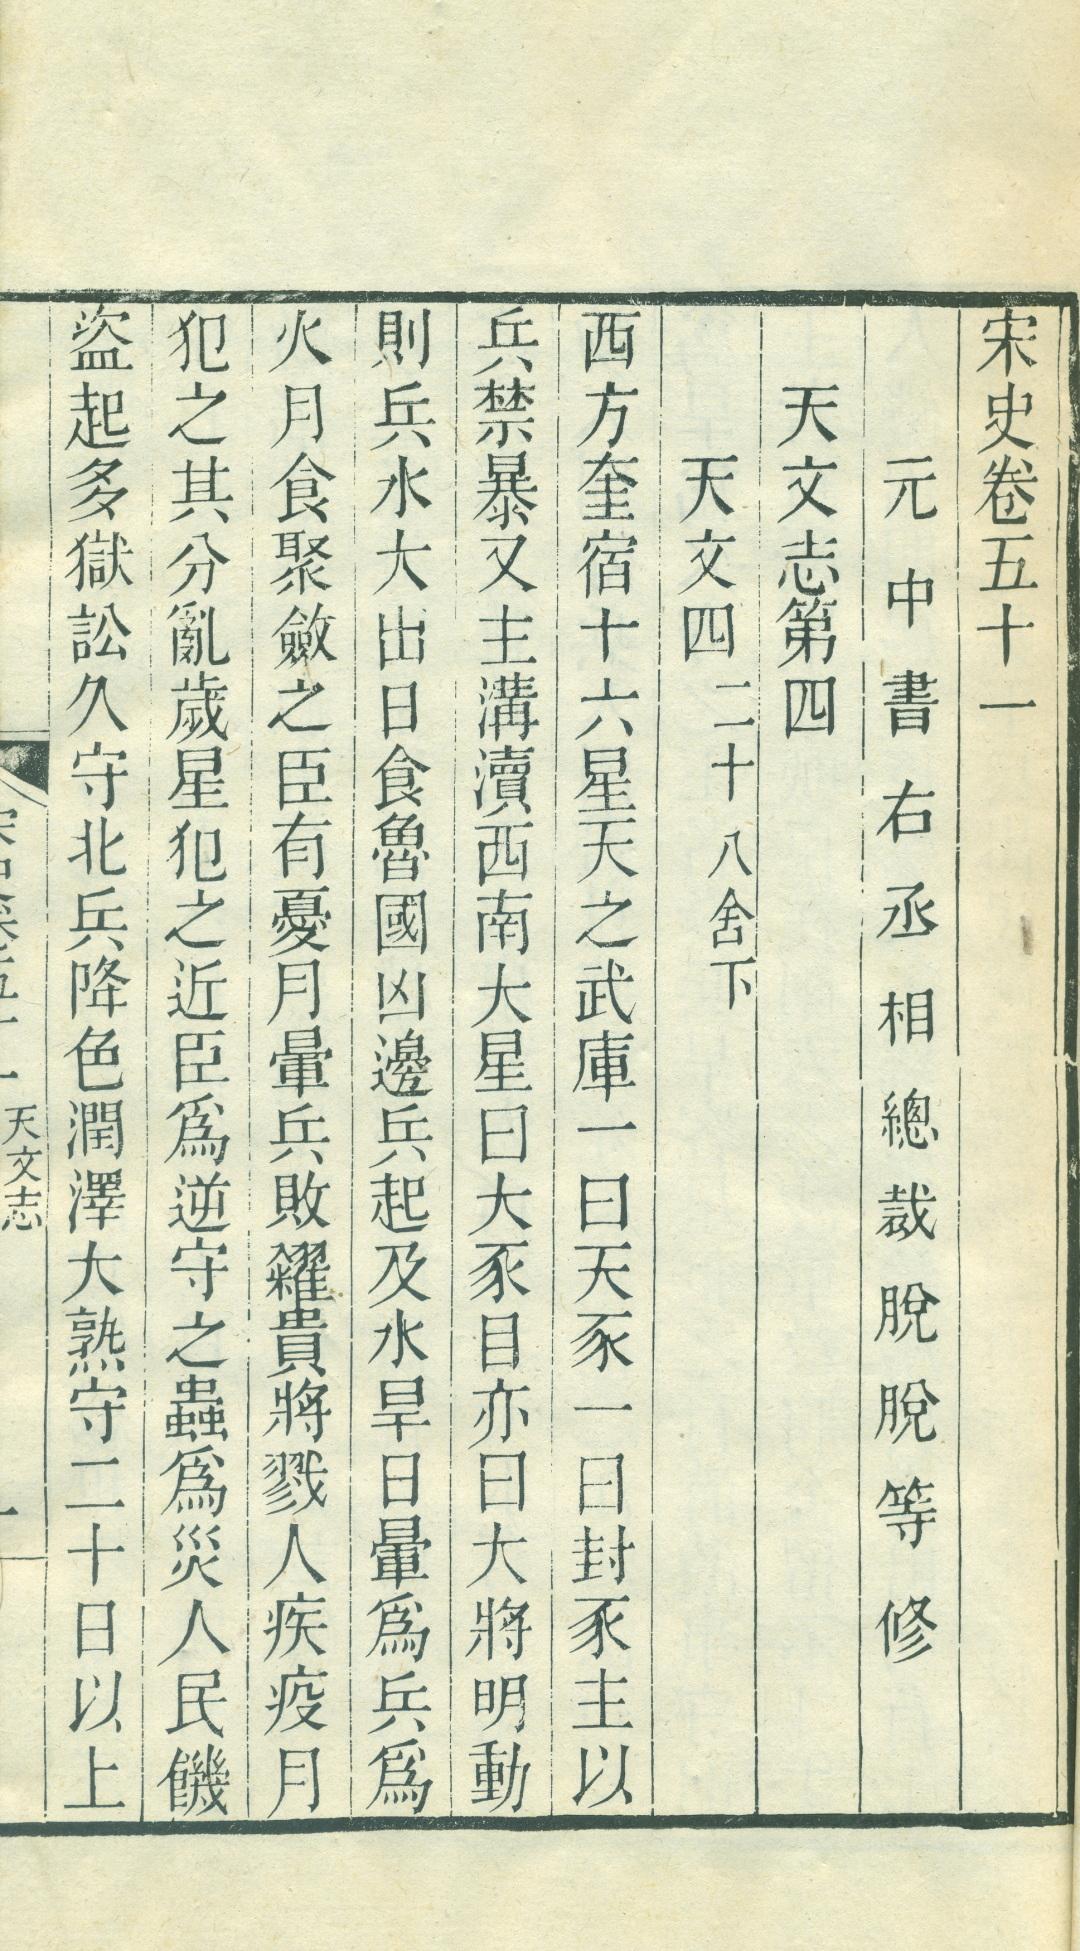 宋史卷五十一
元中書右丞相總裁脫脫等修
天文志第四
天文四 二十八舍下
西方奎宿十六星天之武庫一曰天豕一曰封豕主以
兵禁暴又主溝瀆西南大星曰大豕目亦曰大將明動
則兵水大出日食魯國凶邊兵起及水旱日暈爲兵爲
火月食聚斂之臣有憂月暈兵敗糴貴將戮人疾疫月
犯之其分亂歲星犯之近臣爲逆守之蟲爲災人民饑
盜起多獄訟久守北兵降色潤澤大熟守二十日以上
天文志